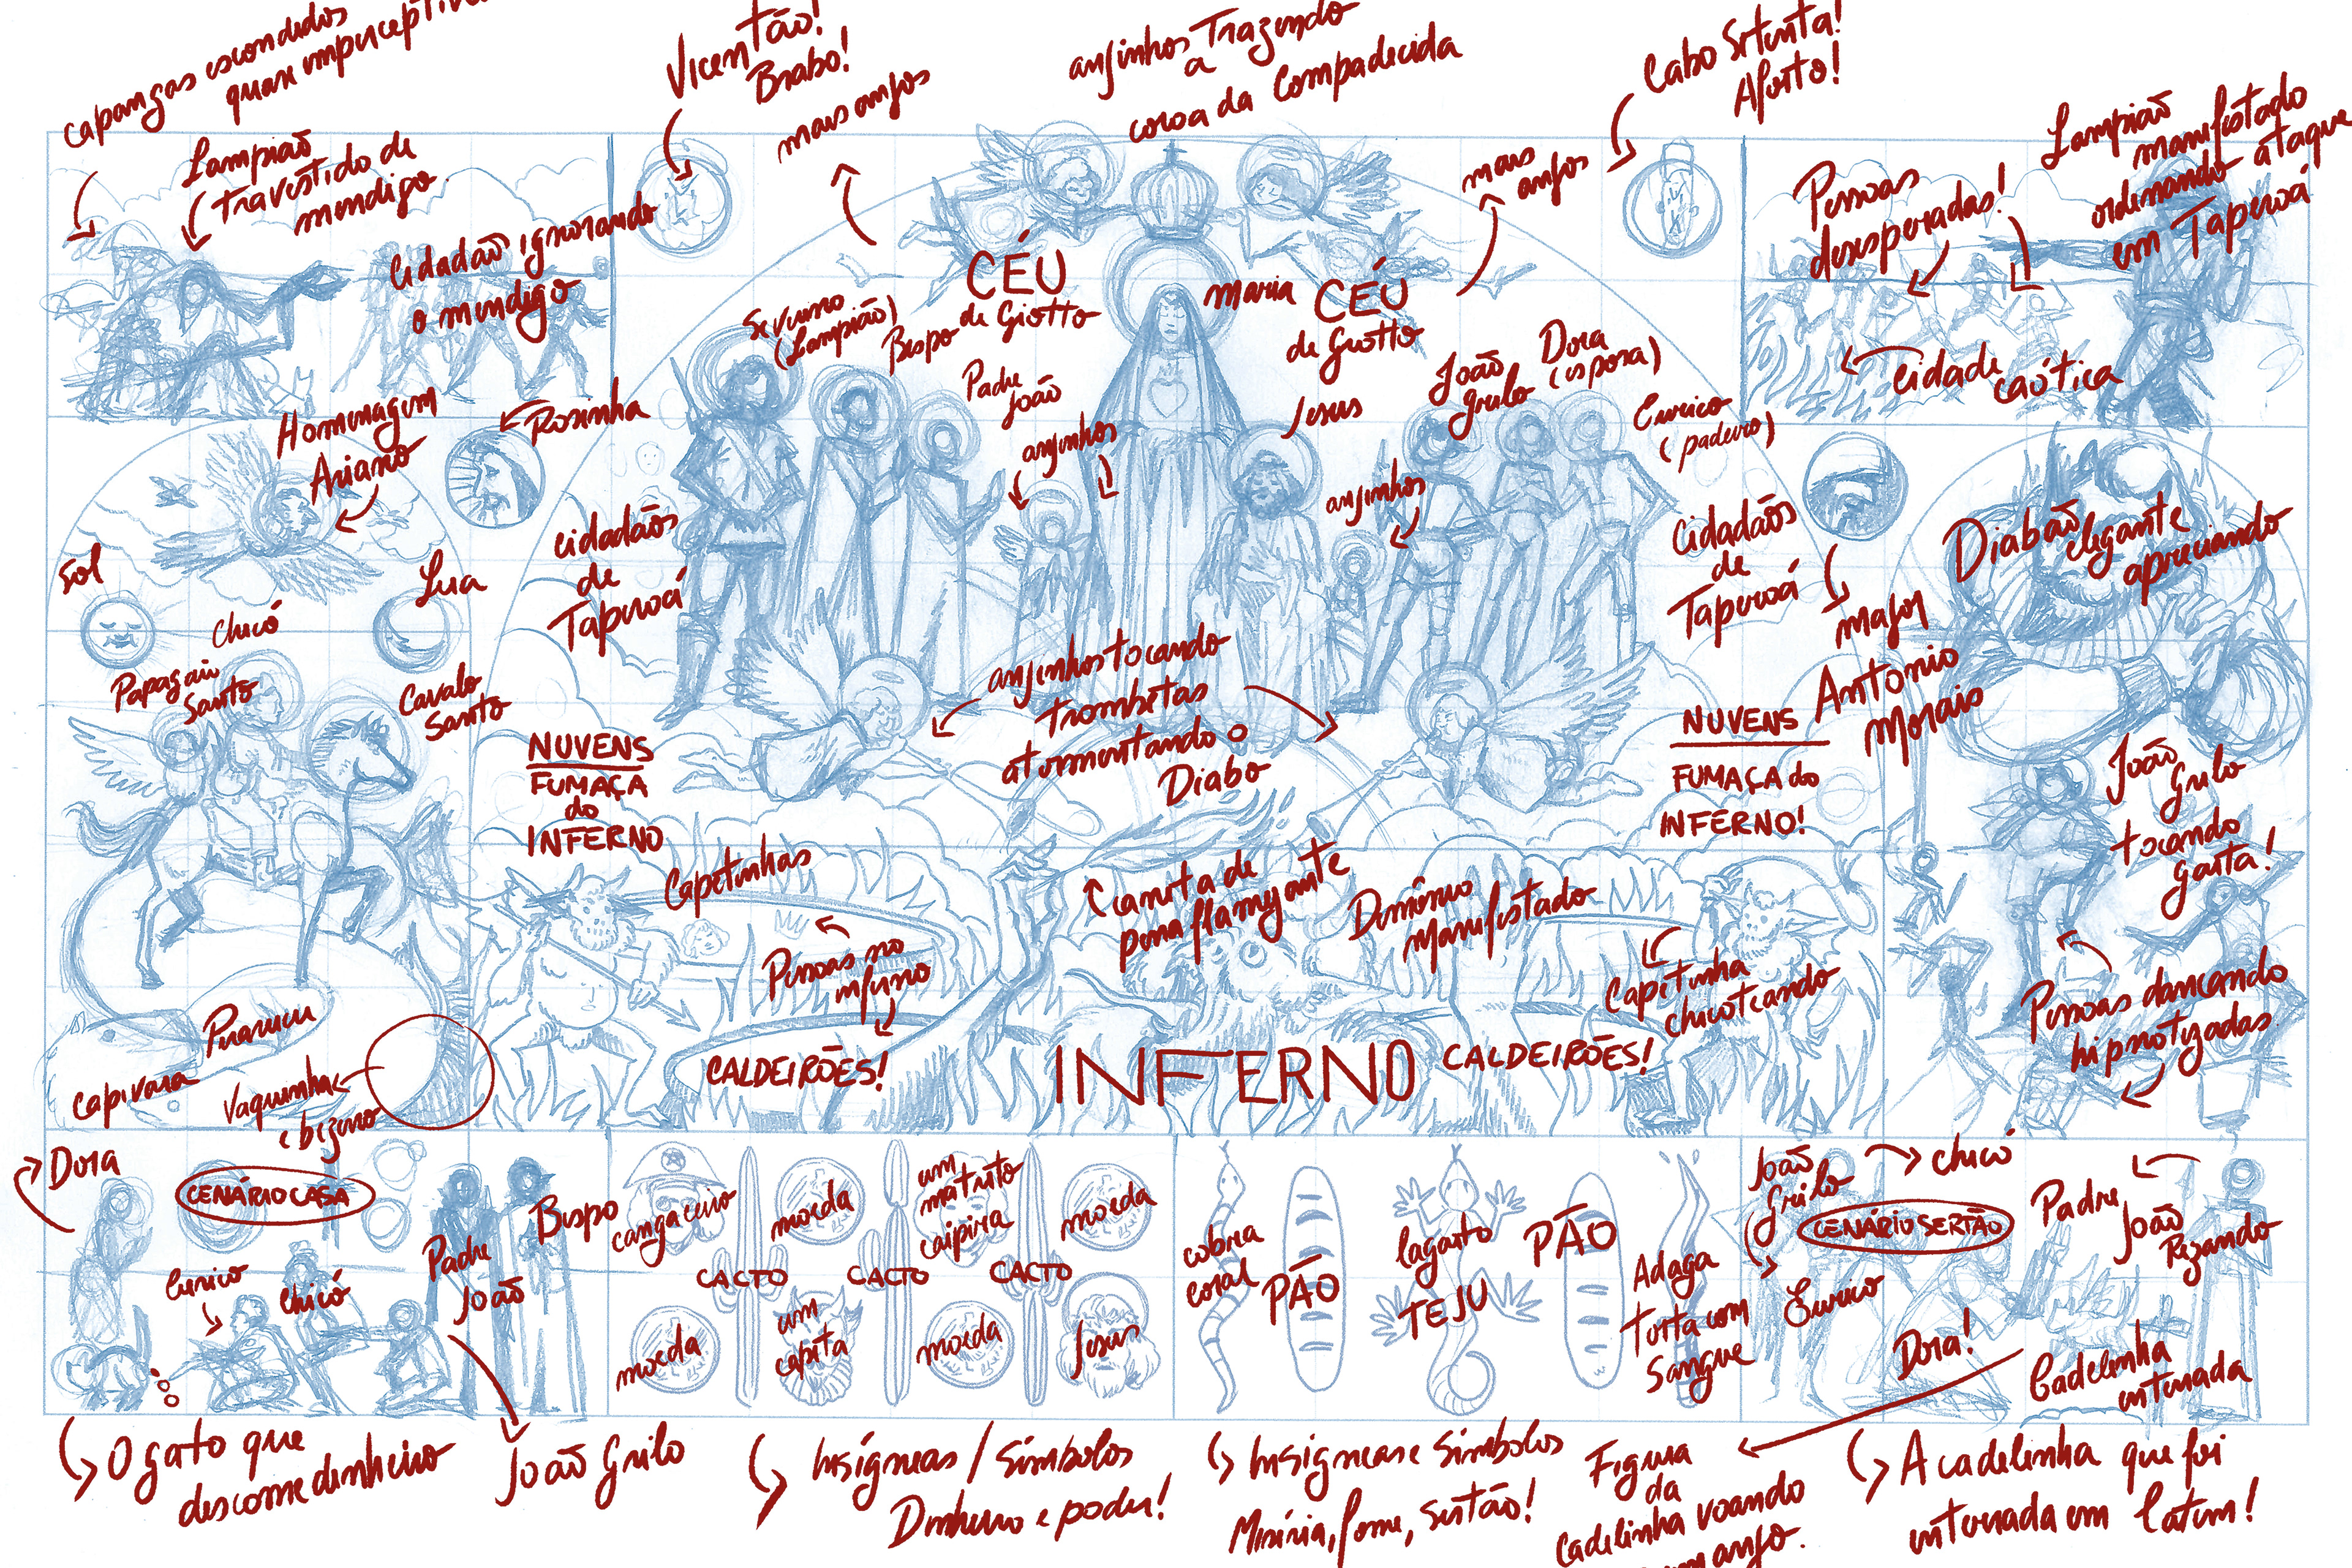 capangas escondidos
quase imperceptíveis
Vicentão!
Brabo!
mais anjos
anjinhos Trazendo
a
coroa da Compadecida
Cabo Setenta!
Aflito!
mais
anjos
Lampião
Travestido de
mendigo
Cidadão ignorando
o mendigo
Pessoas
desesperadas!
Lampião
manifestado
ordenando ataque
em Taperoá
cidade caótica
CÉU
de Giotto
maria
CÉU
de Giotto
Severino
(Lampião)
Bispo
Padre
João
anjinhos
Jesus
João
Grilo
Dora
(esposa)
Eurico
(padeiro)
anjinhos
Homenagem
Ariano
Rosinha
Sol
Lua
Chicó
Papagaio
Santo
Cavalo
Santo
cidadãos
de
Taperoá
Cidadãos
de
Taperoá
major
Antonio
Morais
Diabão
elegante
apreciando
anjinhos tocando
trombetas
atormentando o
Diabo
NUVENS
FUMAÇA
do
INFERNO
NUVENS
FUMAÇA do
INFERNO!
João
Grilo
tocando
gaita!
Capetinhas
Pessoas no
inferno
Caneta de
pena flamejante
Demônio
manifestado
Capetinha
chicoteando
Pessoas dançando
hipnotizadas
CALDEIRÕES!
INFERNO
CALDEIRÕES!
Pirarucu
Capivara
Vaquinha
e bezerro
Dora
CENÁRIO CASA
Eurico
Chicó
Padre
João
Bispo
cangaceiro
moeda
um
matuto
caipira
moeda
CACTO
CACTO
CACTO
moeda
um
capeta
moeda
Jesus
cobra
coral
PÃO
lagarto
TEJU
PÃO
Adaga
torta com
Sangue
João
Grilo
chicó
CENÁRIO SERTÃO
Eurico
Padre
João
Rezando
Dora!
Cadelinha
enterrada
O gato que
descome dinheiro
João Grilo
Insígneas / Símbolos
Dinheiro e poder!
Insígneas e Símbolos
Miséria, fome, Sertão!
Figura
da
cadelinha voando
anjo.
A cadelinha que foi
enterrada em latim!